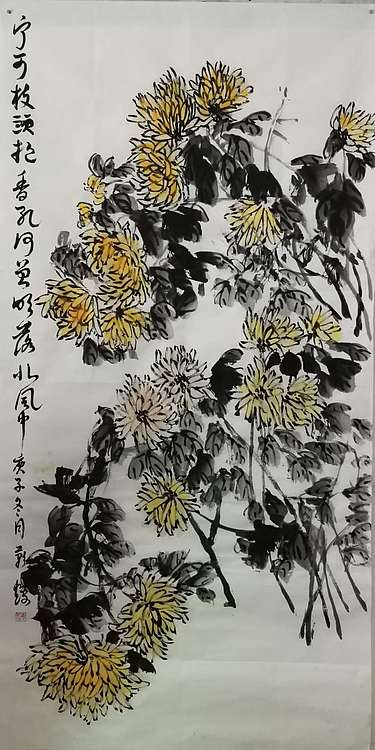 宁可枝頭抱香死何曾吹落北風中 庚子冬月